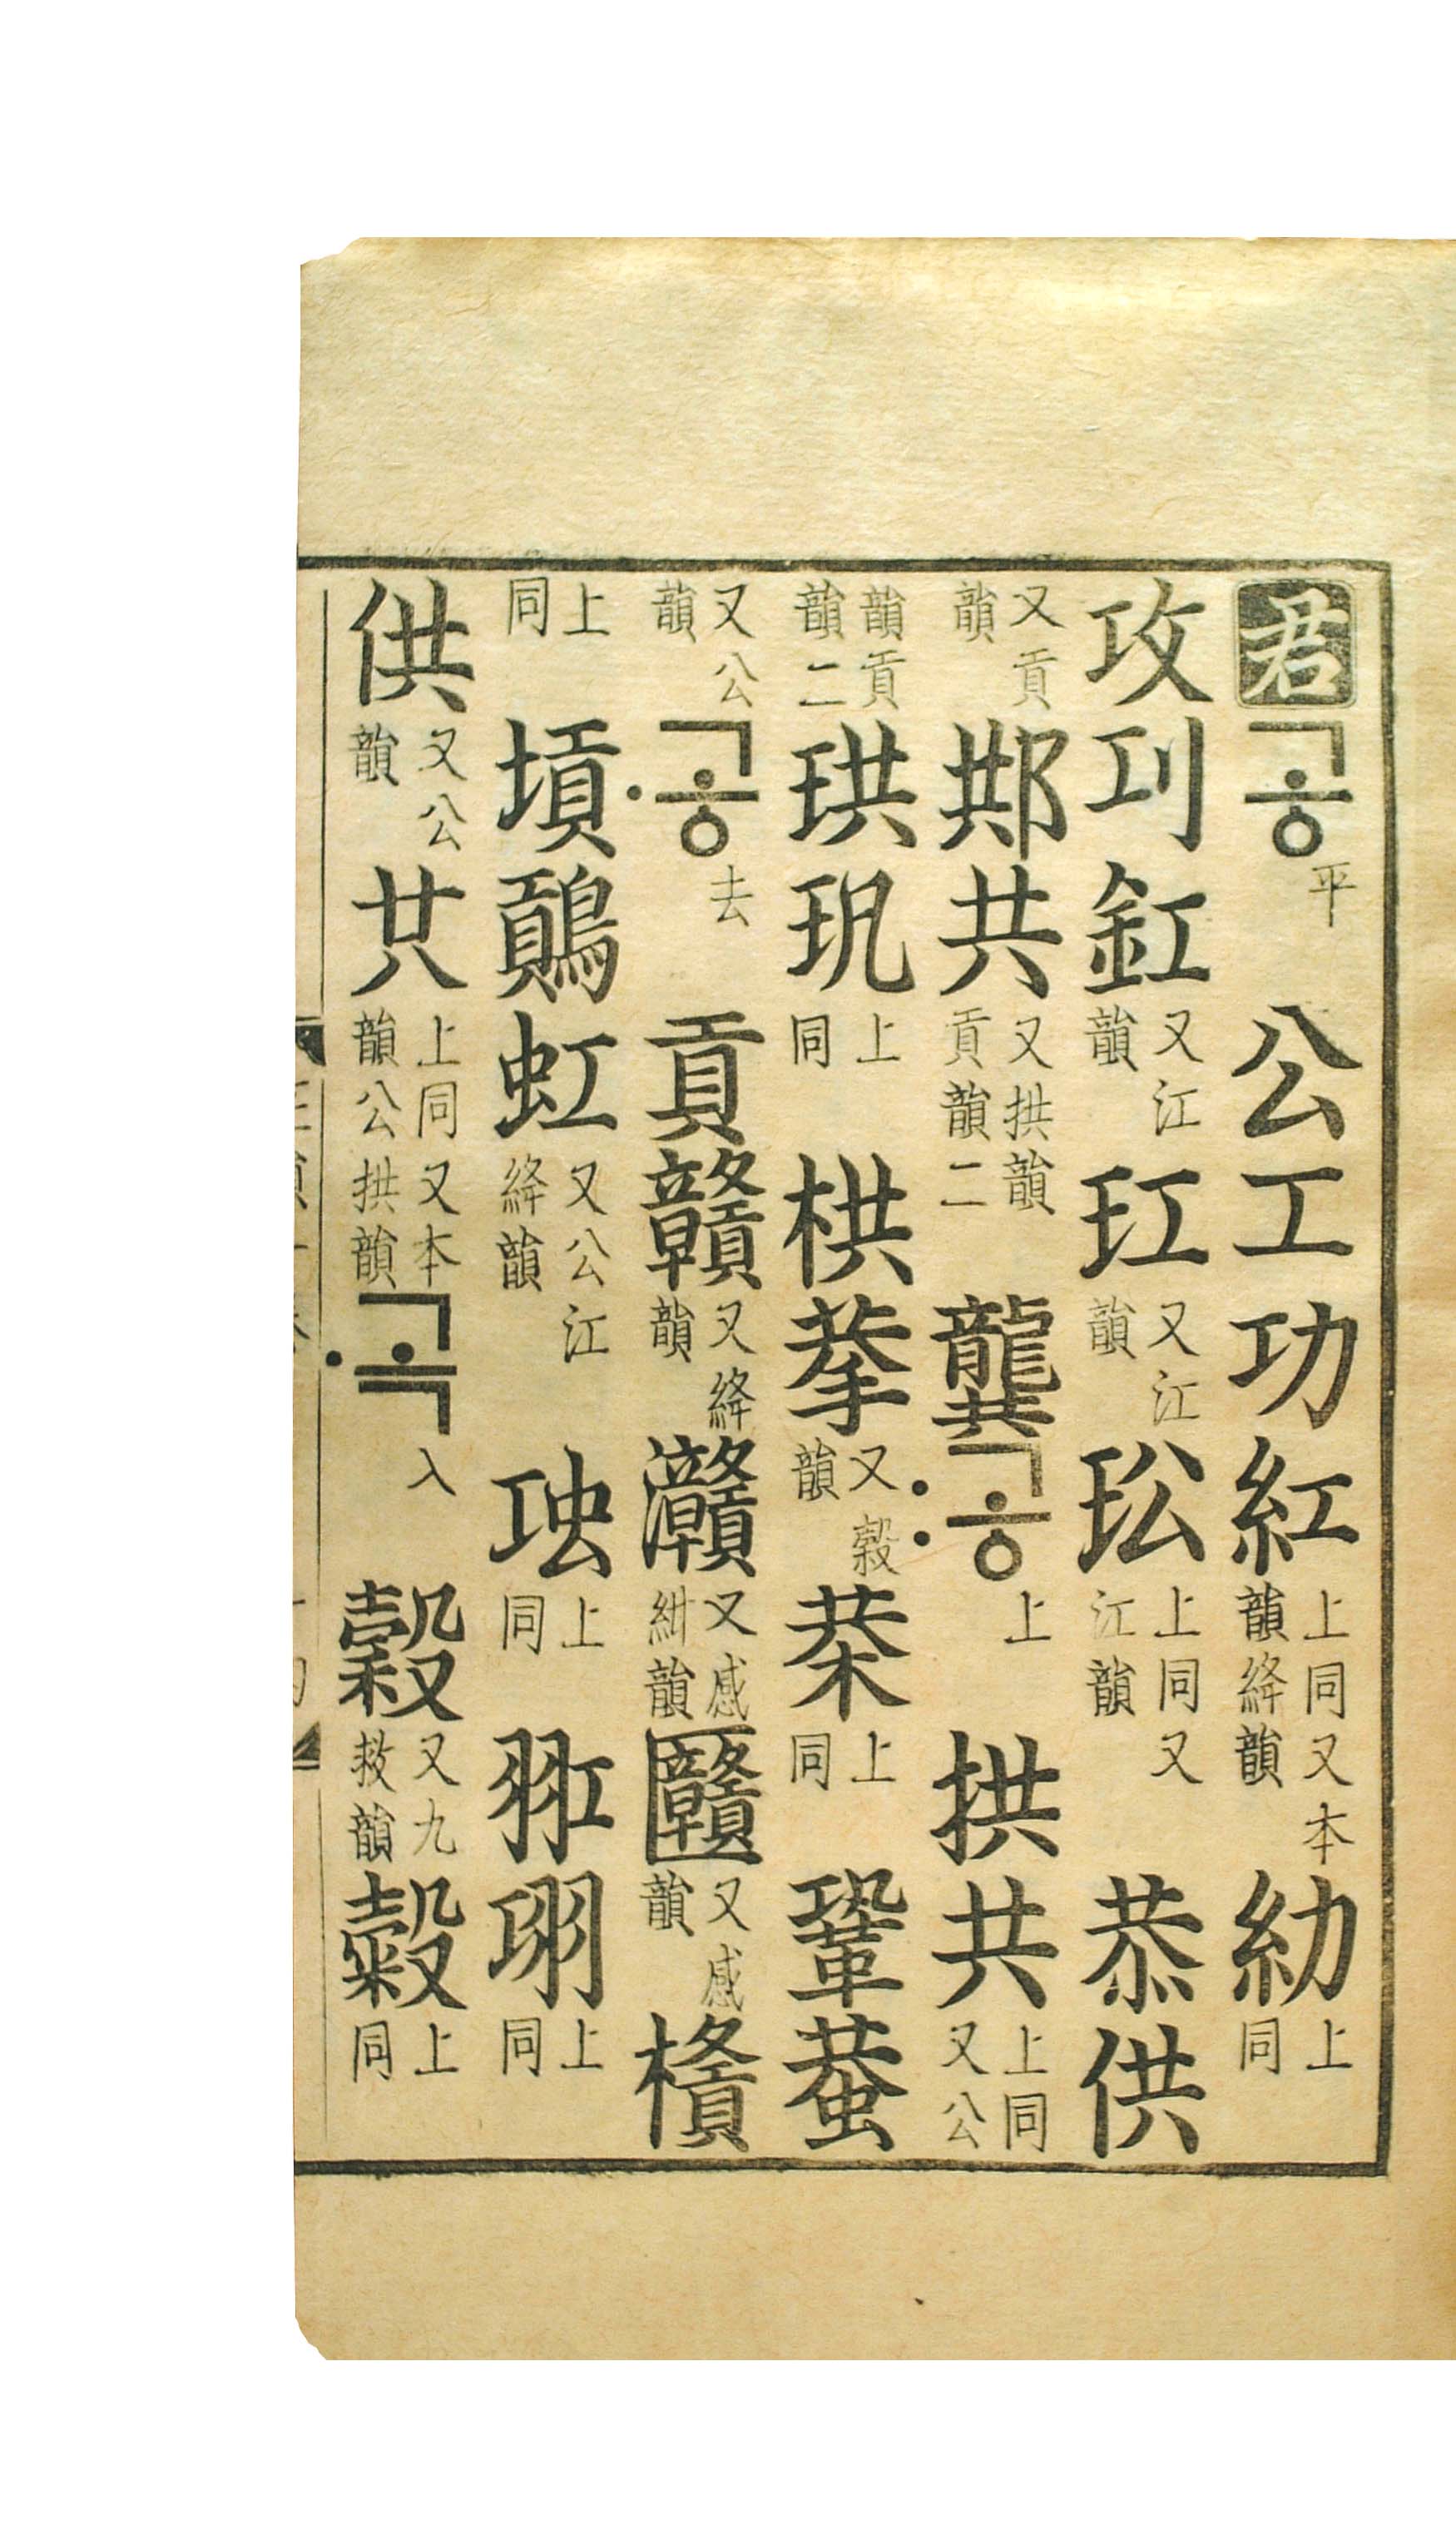 君공平公工功紅上同又本韻絳韻糼上同
攻㓚釭又江韻玒又江韻玜上同又江韻恭供
又貢韻䢼共又拱韻貢韻二龔〯공上拱共上同又公
韻貢韻二珙上同栱拲又穀韻上同鞏蛬
又公韻〮공去貢贛又絳韻灨又感紺韻又感韻
上同虹又公江絳韻上同羾上同
供又公韻上同又本韻公拱韻〮곡入穀又九救韻上同